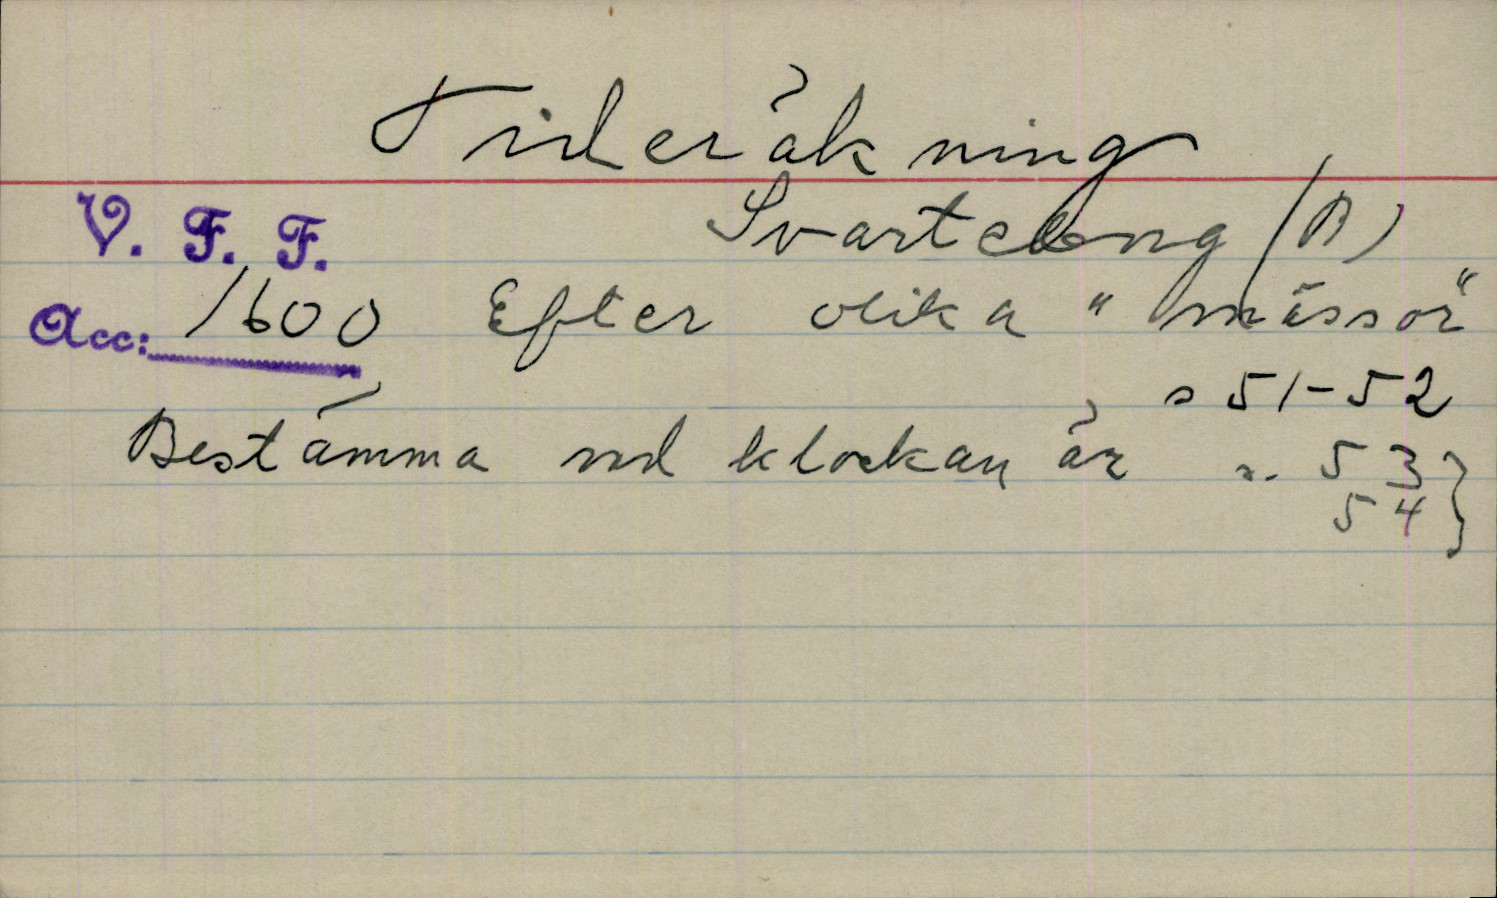 Tideräkning
V. F. F. Svarteborg (B)
Acc: 1600 Efter olika "mässor"
s 51-52
Bestämma vad klockan är s. 53
54 }